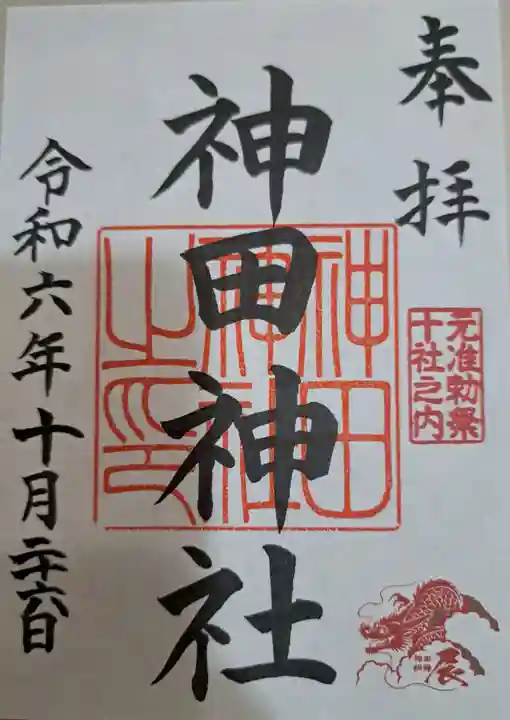 奉拝
元准勅祭
十社之内
神田神社
神田
神社
之印
令和六年十月二十六日
辰